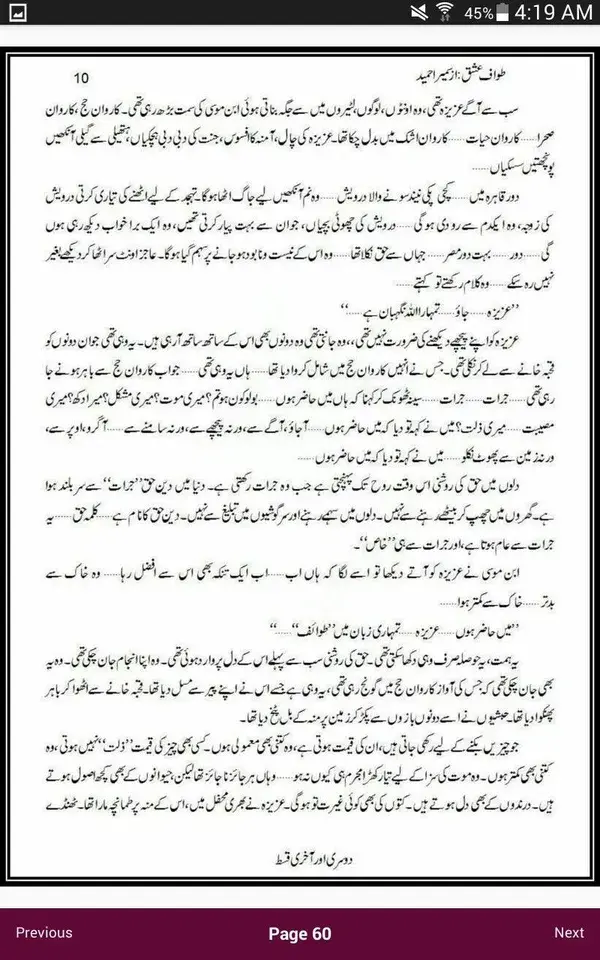 45% 4:19 AM
طواف عشق: از سمیرا حمید 10
سب سے آگے عزیزہ تھی، وہ اونٹوں، لوگوں، لٹیروں میں سے جگہ بناتی ہوئی ابن موسی کی سمت بڑھ رہی تھی۔ کاروان حج، کاروان
صحرا...... کاروان حیات ...... کاروان اشک میں بدل چکا تھا۔ عزیزہ کی چال، آمنہ کا افسوس، جنت کی دبی دبی ہچکیاں، ہتھیلی سے گیلی آنکھیں
پونچھتیں سسکیاں ......
دور قاہرہ میں ...... کچی پکی نیند سونے والا درویش ...... وہ نم آنکھیں لیے جاگ اٹھا ہوگا۔ تہجد کے لیے اٹھنے کی تیاری کرتی درویش
کی زوجہ، وہ ایکدم سے رو دی ہوگی ...... درویش کی چھوٹی بچیاں، جو ان سے بہت پیار کرتی تھیں، وہ ایک برا خواب دیکھ رہی ہوں
گی ...... دور ...... بہت دور مصر ...... جہاں سے حق نکلا تھا ...... وہ اس کے نیست و نابود ہو جانے پر سہم گیا ہوگا۔ عاجز اونٹ سر اٹھا کر دیکھے بغیر
نہیں رہ سکے ...... وہ کلام رکھتے تو کہتے ......
”عزیزہ ...... جاؤ ...... تمہارا اللہ نگہبان ہے ......“
عزیزہ کو اپنے پیچھے دیکھنے کی ضرورت نہیں تھی،، وہ جانتی تھی وہ دونوں بھی اس کے ساتھ ساتھ آ رہی ہیں۔ یہ وہی تھی جو ان دونوں کو
قحبہ خانے سے لے کر نکلی تھی۔ جس نے انہیں کاروان حج میں شامل کروا دیا تھا ...... ہاں یہ وہی تھی ...... جو اب کاروان حج سے باہر ہونے جا
رہی تھی ...... جرات ...... جرات ...... سینہ ٹھونک کر کہنا کہ ہاں میں حاضر ہوں ...... بولو کون ہو تم؟ میری موت؟ میری مشکل؟ میرا دکھ؟ میری
مصیبت ...... میری ذلت؟ میں نے کہہ تو دیا کہ میں حاضر ہوں ...... آجاؤ، آگے سے، ورنہ پیچھے سے، ورنہ سامنے سے ...... آ گرو، اوپر سے،
ورنہ زمین سے پھوٹ نکلو ...... میں نے کہہ تو دیا کہ میں حاضر ہوں ......
دلوں میں حق کی روشنی اس وقت روح تک پہنچتی ہے جب وہ جرات رکھتی ہے۔ دنیا میں دین حق ”جرات“ سے سر بلند ہوا
ہے۔ گھروں میں چھپ کر بیٹھے رہنے سے نہیں۔ دلوں میں سہمے رہنے اور سرگوشیوں میں تبلیغ سے نہیں۔ دین حق کا نام ہے ...... کلمہ حق ...... یہ
جرات سے عام ہوتا ہے، اور جرات سے ہی ”خاص“۔
ابن موسی نے عزیزہ کو آتے دیکھا تو اسے لگا کہ ہاں اب ...... اب ایک تنکہ بھی اس سے افضل رہا ...... وہ خاک سے
بدتر ...... خاک سے کمتر ہوا ......
”میں حاضر ہوں ...... عزیزہ ...... تمہاری زبان میں ”طوائف“ ......“
یہ ہمت، یہ حوصلہ صرف وہی دکھا سکتی تھی۔ حق کی روشنی سب سے پہلے اس کے دل پر وارد ہوئی تھی۔ وہ اپنا انجام جان چکی تھی۔ وہ یہ
بھی جان چکی تھی کہ جس کی آواز کاروان حج میں گونج رہی تھی، یہ وہی ہے جسے اس نے اپنے پیر سے مسل دیا تھا۔ قحبہ خانے سے اٹھوا کر باہر
پھنکوا دیا تھا۔ حبشیوں نے اسے دونوں بازوں سے پکڑ کر زمین پر منہ کے بل پٹخ دیا تھا۔
جو چیزیں بکنے کے لیے رکھی جاتی ہیں، ان کی قیمت ہوتی ہے، وہ کتنی بھی معمولی ہوں۔ کسی بھی چیز کی قیمت ”ذلت“ نہیں ہوتی، وہ
کتنی بھی کمتر ہوں۔ وہ موت کی سزا کے لیے تیار کھڑا مجرم ہی کیوں نہ ہو ...... وہاں ہر جائز ناجائز تھا لیکن، حیوانوں کے بھی کچھ اصول ہوتے
ہیں۔ درندوں کے بھی دل ہوتے ہیں۔ کتوں کی بھی کوئی غیرت تو ہوگی۔ عزیزہ نے بھری محفل میں، اس کے منہ پر طمانچہ مارا تھا۔ ٹھنڈے
دوسری اور آخری قسط
Previous Page 60 Next